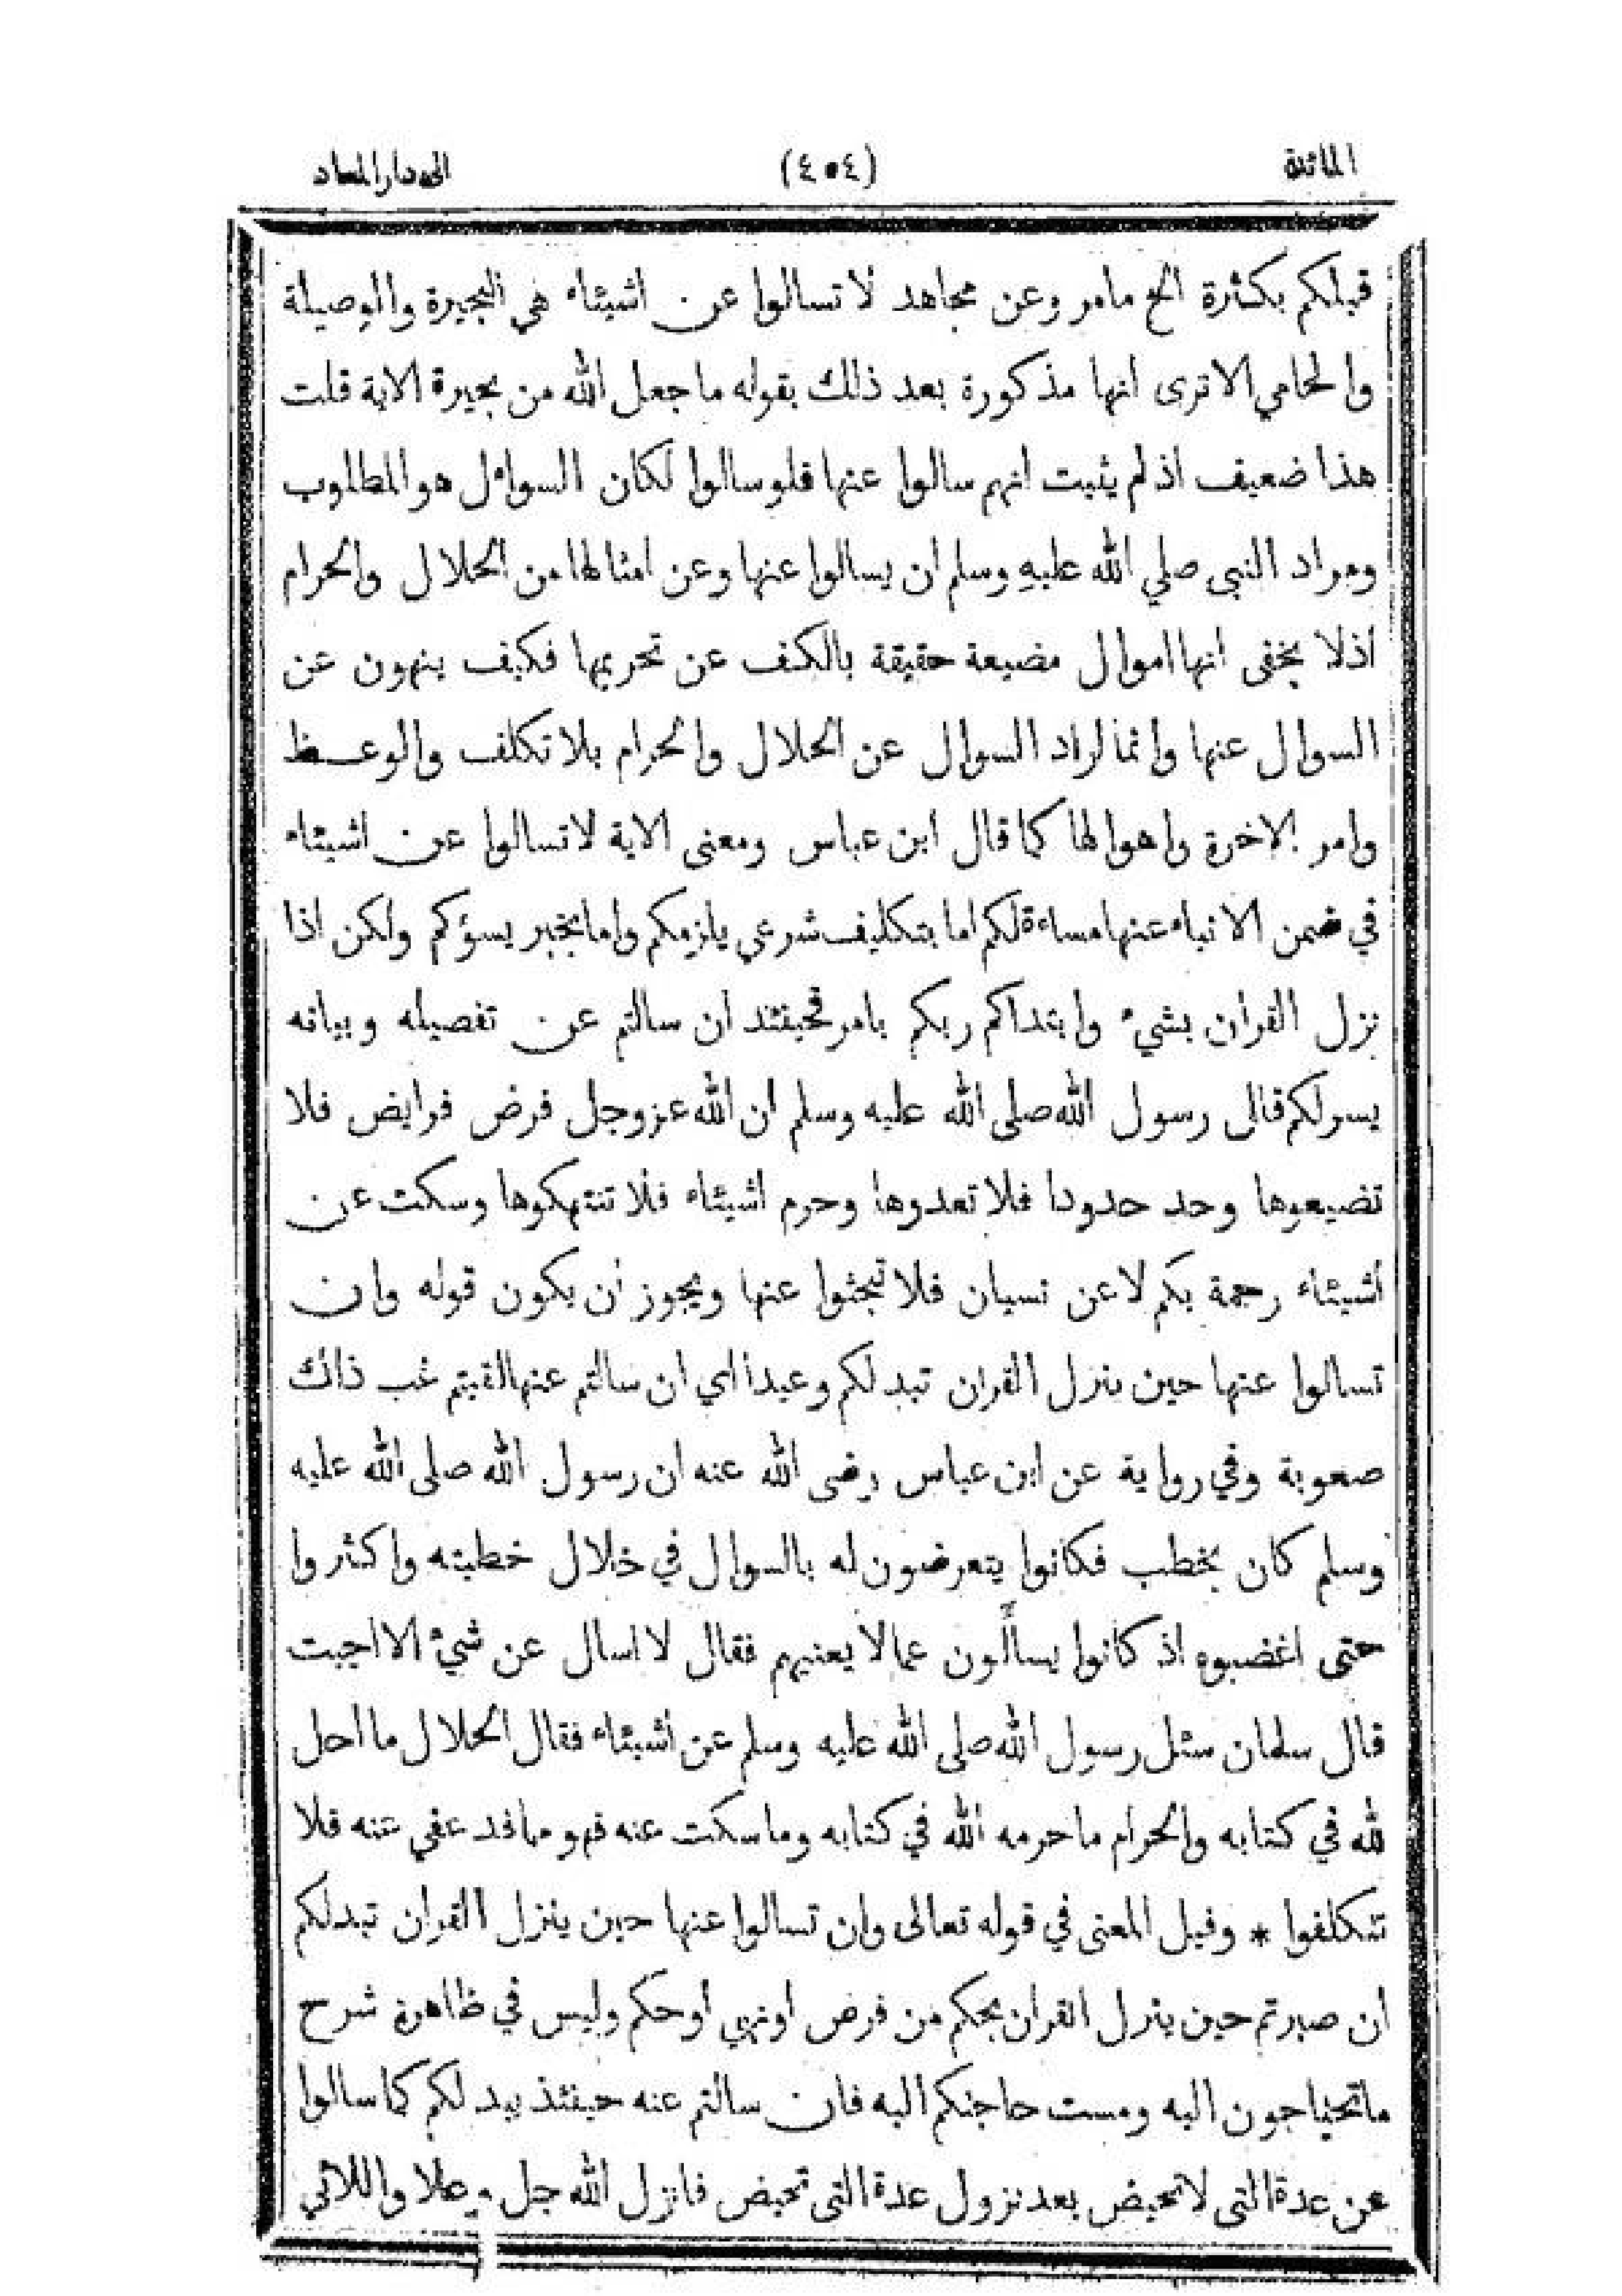 المائدة (٤٠٤) الى دار المعاد
قبلكم بكثرة الخ مامر وعن مجاهد لا تسالوا عن اشيئاء هي البحيرة والوصيلة
والحامي الا ترى انها مذكورة بعد ذلك بقوله ما جعل الله من بحيرة الاية قلت
هذا ضعيف اذ لم يثبت انهم سالوا عنها فلو سالوا لكان السوال هو المطلوب
ومراد النبي صلي الله عليه وسلم ان يسالوا عنها وعن امثالها من الحلال والحرام
اذ لا يخفى انها اموال مضيعة حقيقة بالكف عن تحريمها فكيف ينهون عن
السوال عنها وانما اراد السوال عن الحلال والحرام بلا تكلف والوعظ
وامر الاخرة واهوالها كما قال ابن عباس ومعنى الاية لا تسالوا عن اشيئاء
في ضمن الانباء عنها مساءة لكم اما بتكليف شرعي يلزمكم واما بخبر يسؤكم ولكن اذا
نزل القران بشيء وابتداكم ربكم بامر فحينئذ ان سالتم عن تفصيله وبيانه
يسولكم قال رسول الله صلى الله عليه وسلم ان الله عز وجل فرض فرايض فلا
تضيعوها وحد حدودا فلا تعدوها وحرم اشيئاء فلا تنتهكوها وسكت عن
أشيئاء رحمة بكم لا عن نسيان فلا تبحثوا عنها ويجوز ان يكون قوله وان
تسالوا عنها حين ينزل القران تبد لكم وعيدا اي ان سالتم عنها لقيتم غب ذلك
صعوبة وفي رواية عن ابن عباس رضى الله عنه ان رسول الله صلى الله عليه
وسلم كان يخطب فكانوا يتعرضون له بالسوال في خلال خطبته واكثروا
حتى اغضبوه اذ كانوا يسألون عما لا يعنيهم فقال لا اسال عن شيئ الا اجبت
قال سلمان سئل رسول الله صلى الله عليه وسلم عن أشيئاء فقال الحلال ما احل
لله في كتابه والحرام ما حرمه الله في كتابه وما سكت عنه فهو مما قد عفى عنه فلا
تتكلفوا * وقيل المعنى في قوله تعالى وان تسالوا عنها حين ينزل القران تبد لكم
ان صبرتم حين ينزل القران بحكم من فرض او نهي او حكم وليس في ظاهره شرح
ما تحتاجون اليه ومست حاجتكم اليه فان سالتم عنه حينئذ يبد لكم كما سالوا
عن عدة التى لا تحيض بعد نزول عدة التى تحيض فانزل الله جل وعلا واللائي